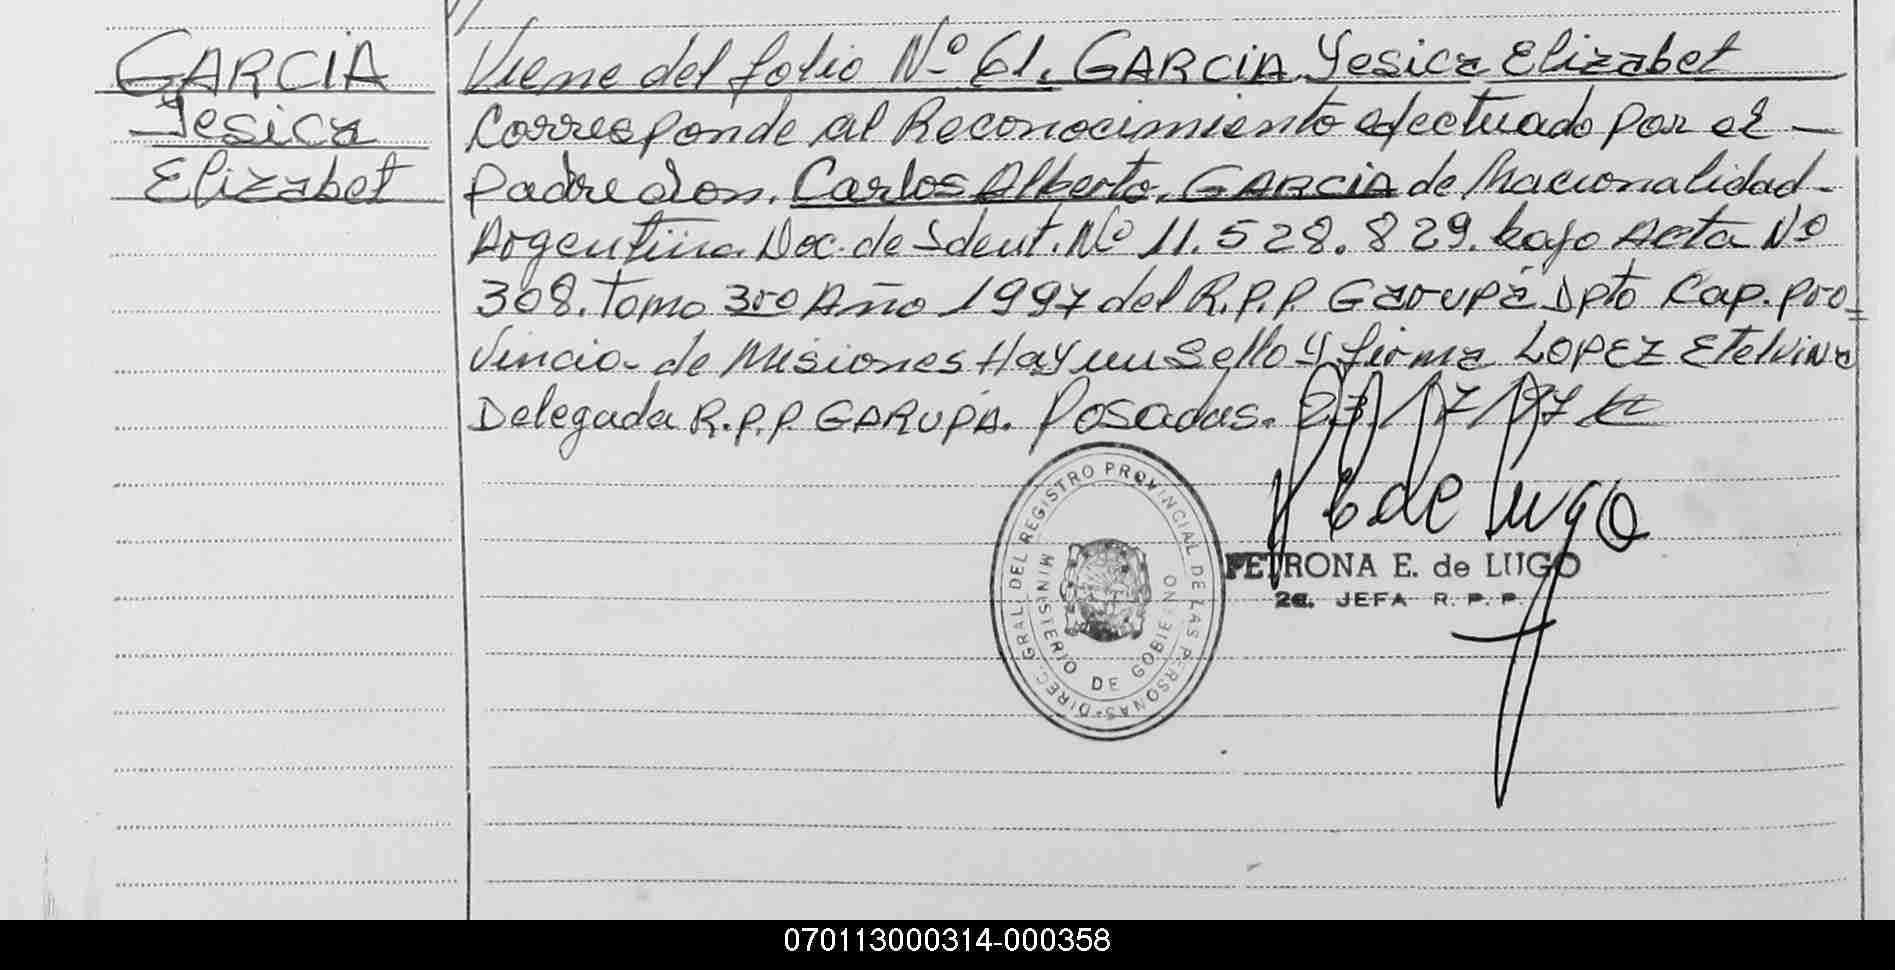 GARCIA
Yesica
Elizabet
Viene del folio Nº 61. GARCIA Yesica Elizabet
Corresponde al Reconocimiento efectuado por el -
padre don. Carlos Alberto. GARCIA de Nacionalidad -
Argentina. Doc. de Ident. Nº 11.528.829. bajo Acta Nº
308. Tomo 3ro Año 1997 del R.P.P. Garupá Dpto Cap. pro=
vincia de Misiones Hay un Sello y firma LOPEZ Etelvina
Delegada R.P.P. GARUPÁ. Posadas. 23/7/97
DIREC. GRAL. DEL REGISTRO PROVINCIAL DE LAS PERSONAS
MINISTERIO DE GOBIERNO
E de Lugo
PETRONA E. de LUGO
2a. JEFA R. P. P.
070113000314-000358